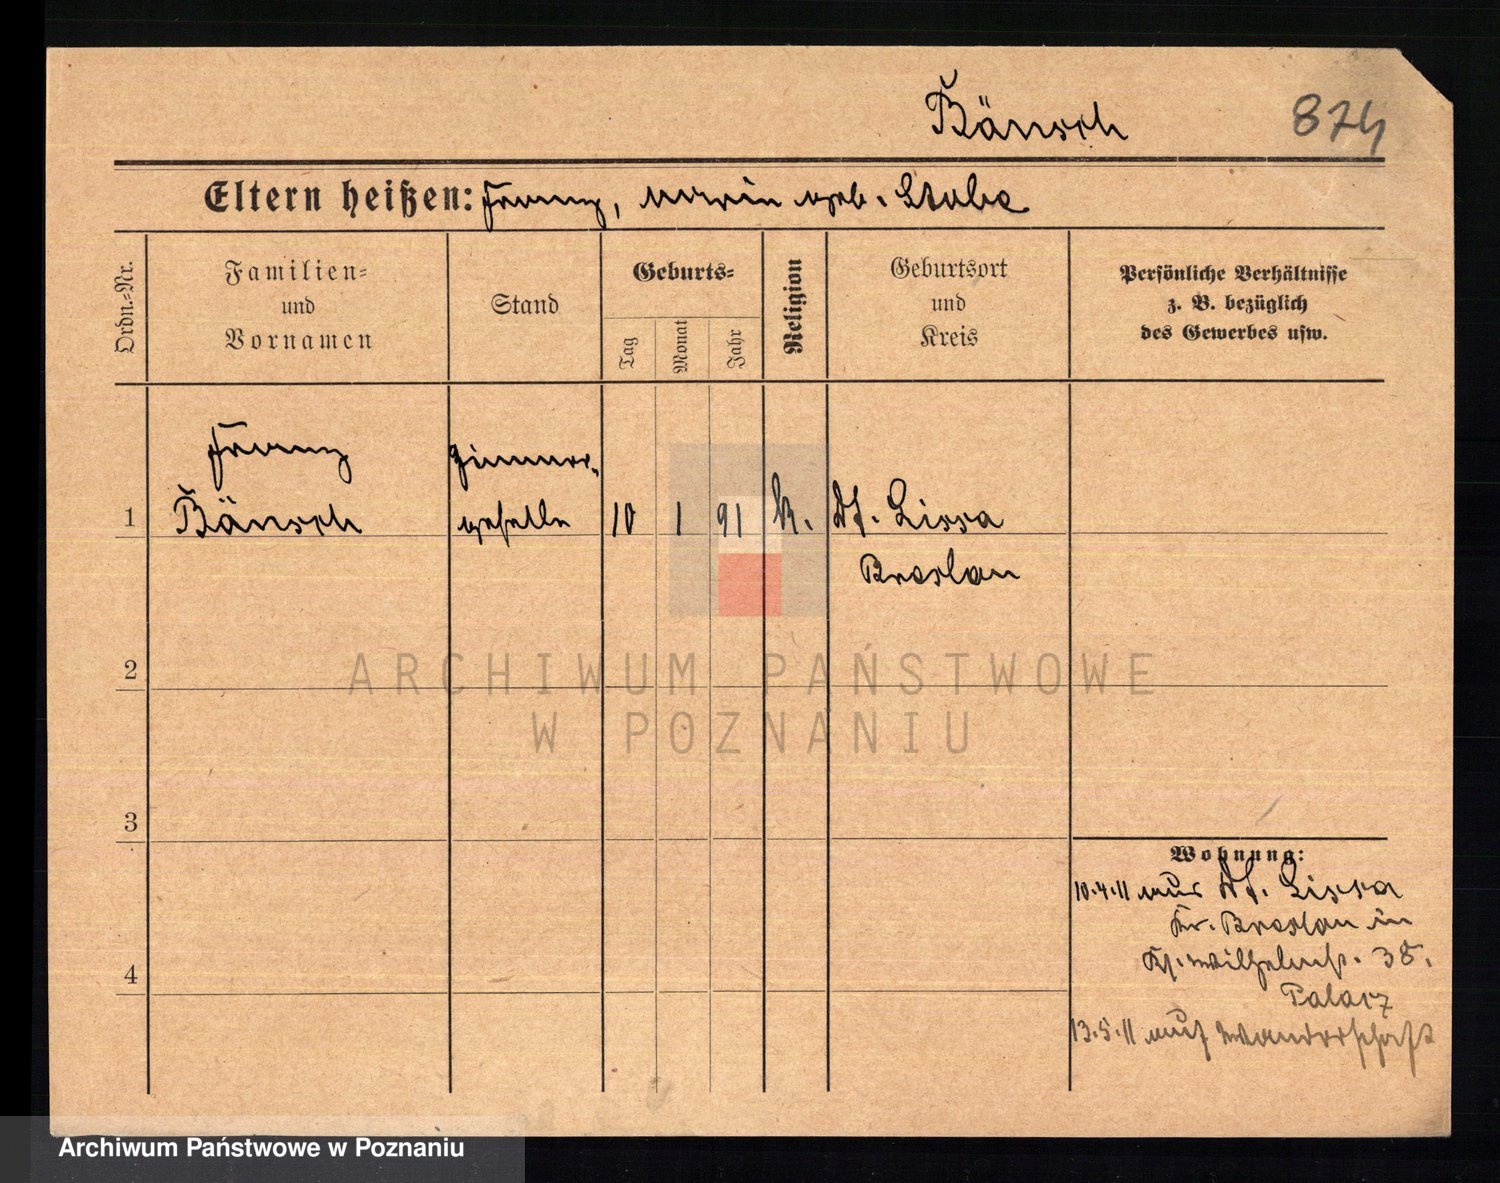 Bänsch
874
Eltern heißen: Franz, Maria geb. Stabe
Ordn.=Nr.
Familien=
und
Vornamen
Stand
Geburts=
Tag
Monat
Jahr
Religion
Geburtsort
und
Kreis
Persönliche Verhältnisse
z. B. bezüglich
des Gewerbes usw.
Franz Zimmer-
1 Bänsch geselle 10 1 91 k. Dt. Lissa
Breslau
2
ARCHIWUM PAŃSTWOWE
W POZNANIU
3
Wohnung:
10.4.11 aus Dt. Lissa
Kr. Breslau in
Wilhelmstr. 38.
13.5.11 auf Wanderschaft
4
Archiwum Państwowe w Poznaniu